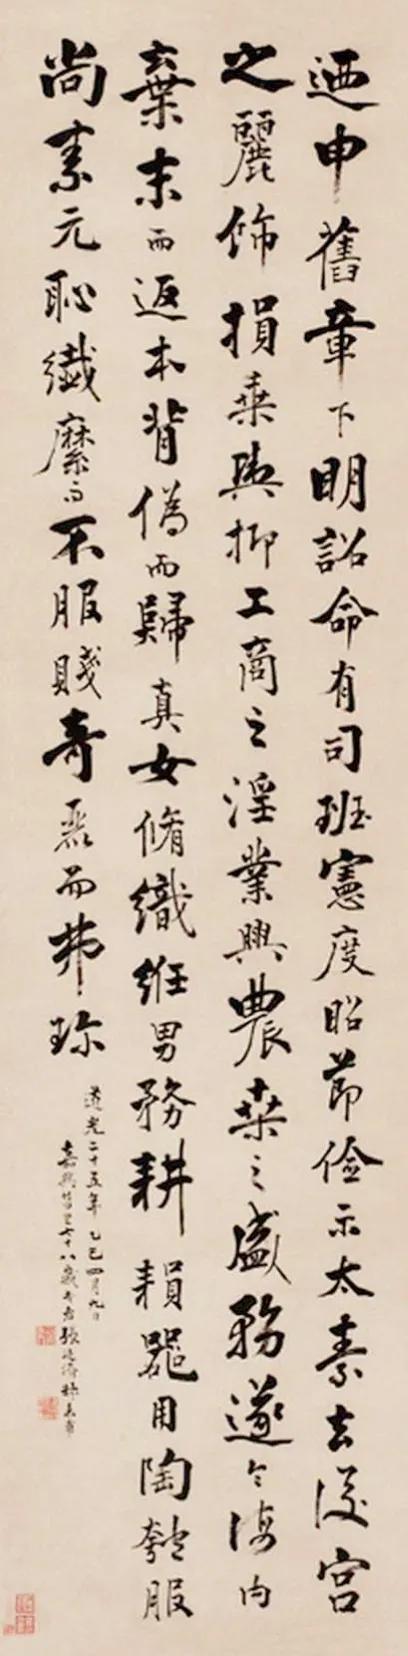 迺申舊章下明詔命有司班憲度昭節儉示太素去後宮
之麗飾損乘輿抑工商之淫業興農桑之盛務遂令海內
棄末而返本背偽而歸真女脩織紝男務耕䎫器用陶匏服
尚素元恥纖縻而不服賤奇麗而弗珍
道光二十五年乙巳四月九日
嘉興竹里七十八歲張廷濟叔未